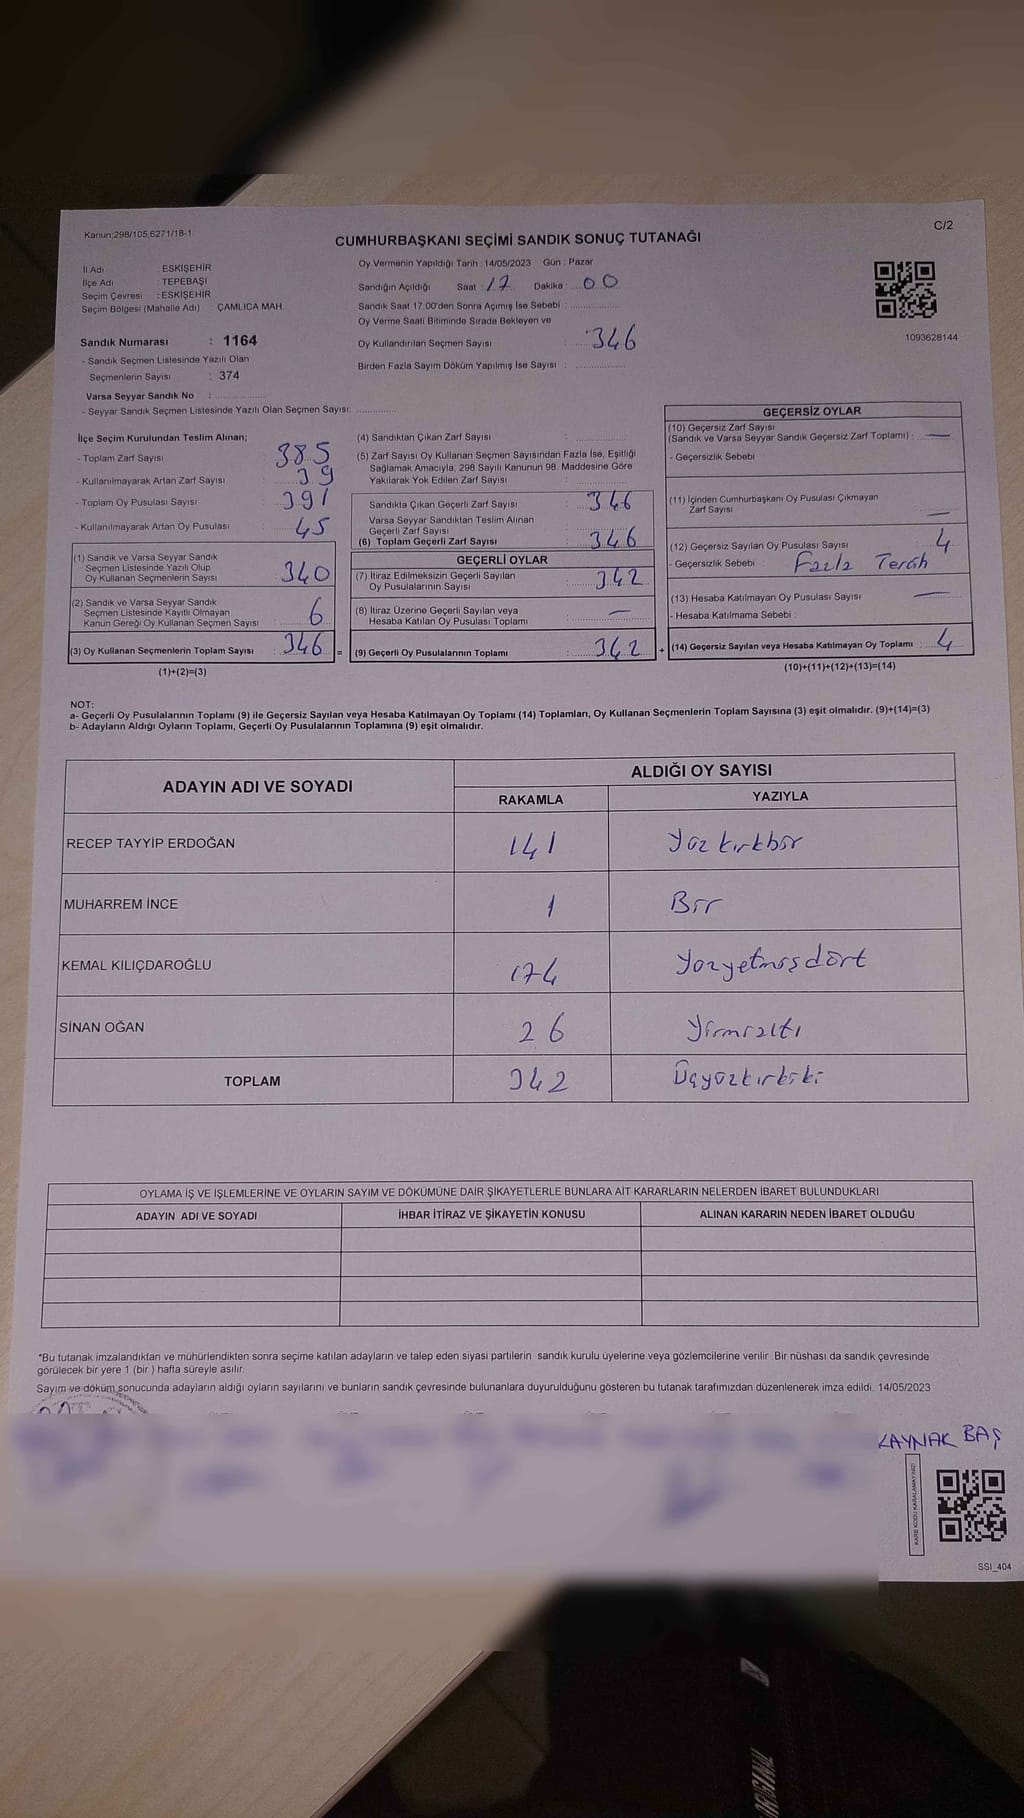 Kanun;298/105,6271/18-1
C/2
CUMHURBAŞKANI SEÇİMİ SANDIK SONUÇ TUTANAĞI
İl Adı : ESKİŞEHİR
İlçe Adı : TEPEBAŞI
Seçim Çevresi : ESKİŞEHİR
Seçim Bölgesi (Mahalle Adı) : ÇAMLICA MAH
Sandık Numarası : 1164
- Sandık Seçmen Listesinde Yazılı Olan
Seçmenlerin Sayısı : 374
Varsa Seyyar Sandık No :
- Seyyar Sandık Seçmen Listesinde Yazılı Olan Seçmen Sayısı:
Oy Vermenin Yapıldığı Tarih :14/05/2023 Gün : Pazar
Sandığın Açıldığı Saat : 17 Dakika : 00
Sandık Saat 17:00'den Sonra Açımış İse Sebebi :
Oy Verme Saati Bitiminde Sırada Bekleyen ve
Oy Kullandırılan Seçmen Sayısı : 346
Birden Fazla Sayım Döküm Yapılmış İse Sayısı :
1093628144
İlçe Seçim Kurulundan Teslim Alınan;
- Toplam Zarf Sayısı 385
- Kullanılmayarak Artan Zarf Sayısı 39
- Toplam Oy Pusulası Sayısı 391
- Kullanılmayarak Artan Oy Pusulası 45
(1) Sandık ve Varsa Seyyar Sandık
Seçmen Listesinde Yazılı Olup
Oy Kullanan Seçmenlerin Sayısı 340
(2) Sandık ve Varsa Seyyar Sandık
Seçmen Listesinde Kayıtlı Olmayan
Kanun Gereği Oy Kullanan Seçmen Sayısı 6
(3) Oy Kullanan Seçmenlerin Toplam Sayısı : 346 =
(1)+(2)=(3)
(4) Sandıktan Çıkan Zarf Sayısı :
(5) Zarf Sayısı Oy Kullanan Seçmen Sayısından Fazla İse, Eşitliği
Sağlamak Amacıyla, 298 Sayılı Kanunun 98. Maddesine Göre
Yakılarak Yok Edilen Zarf Sayısı :
Sandıkta Çıkan Geçerli Zarf Sayısı : 346
Varsa Seyyar Sandıktan Teslim Alınan
Geçerli Zarf Sayısı
(6) Toplam Geçerli Zarf Sayısı : 346
GEÇERLİ OYLAR
(7) İtiraz Edilmeksizin Geçerli Sayılan
Oy Pusulalarının Sayısı : 342
(8) İtiraz Üzerine Geçerli Sayılan veya
Hesaba Katılan Oy Pusulası Toplamı : —
(9) Geçerli Oy Pusulalarının Toplamı : 342 +
GEÇERSİZ OYLAR
(10) Geçersiz Zarf Sayısı
(Sandık ve Varsa Seyyar Sandık Geçersiz Zarf Toplamı) : —
- Geçersizlik Sebebi
(11) İçinden Cumhurbaşkanı Oy Pusulası Çıkmayan
Zarf Sayısı —
(12) Geçersiz Sayılan Oy Pusulası Sayısı 4
- Geçersizlik Sebebi : Fazla Tercih
(13) Hesaba Katılmayan Oy Pusulası Sayısı —
- Hesaba Katılmama Sebebi :
(14) Geçersiz Sayılan veya Hesaba Katılmayan Oy Toplamı : 4
(10)+(11)+(12)+(13)=(14)
NOT:
a- Geçerli Oy Pusulalarının Toplamı (9) ile Geçersiz Sayılan veya Hesaba Katılmayan Oy Toplamı (14) Toplamları, Oy Kullanan Seçmenlerin Toplam Sayısına (3) eşit olmalıdır. (9)+(14)=(3)
b- Adayların Aldığı Oyların Toplamı, Geçerli Oy Pusulalarının Toplamına (9) eşit olmalıdır.
ADAYIN ADI VE SOYADI ALDIĞI OY SAYISI
RAKAMLA YAZIYLA
RECEP TAYYİP ERDOĞAN 141 Yüz kırkbir
MUHARREM İNCE 1 Bir
KEMAL KILIÇDAROĞLU 174 Yüzyetmişdört
SİNAN OĞAN 26 Yirmialtı
TOPLAM 342 Üçyüzkırkiki
OYLAMA İŞ VE İŞLEMLERİNE VE OYLARIN SAYIM VE DÖKÜMÜNE DAİR ŞİKAYETLERLE BUNLARA AİT KARARLARIN NELERDEN İBARET BULUNDUKLARI
ADAYIN ADI VE SOYADI İHBAR İTİRAZ VE ŞİKAYETİN KONUSU ALINAN KARARIN NEDEN İBARET OLDUĞU
*Bu tutanak imzalandıktan ve mühürlendikten sonra seçime katılan adayların ve talep eden siyasi partilerin sandık kurulu üyelerine veya gözlemcilerine verilir .Bir nüshası da sandık çevresinde
görülecek bir yere 1 (bir ) hafta süreyle asılır.
Sayım ve döküm sonucunda adayların aldığı oyların sayılarını ve bunların sandık çevresinde bulunanlara duyurulduğunu gösteren bu tutanak tarafımızdan düzenlenerek imza edildi. 14/05/2023
KAYNAK BAŞ
KARE KODU KARALAMAYINIZ!
SSI_404
ORIGINAL